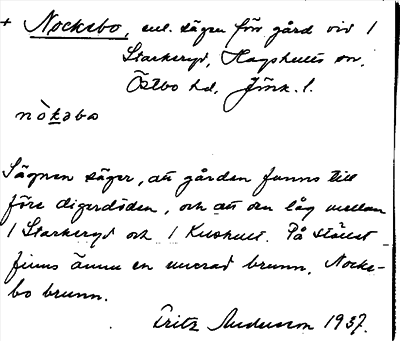 + Nocksbo, enl. sägen förr gård vid 1
Starkeryd, Hagshults sn,
Östbo hd, Jönk. l.
nòkəbo
Sägnen säger, att gården funns till
före digerdöden, och att den låg mellan
1 Starkeryd och 1 Kushult. På stället
finns ännu en murad brunn, Nocks-
bo brunn.
Fritz Andersson 1937.